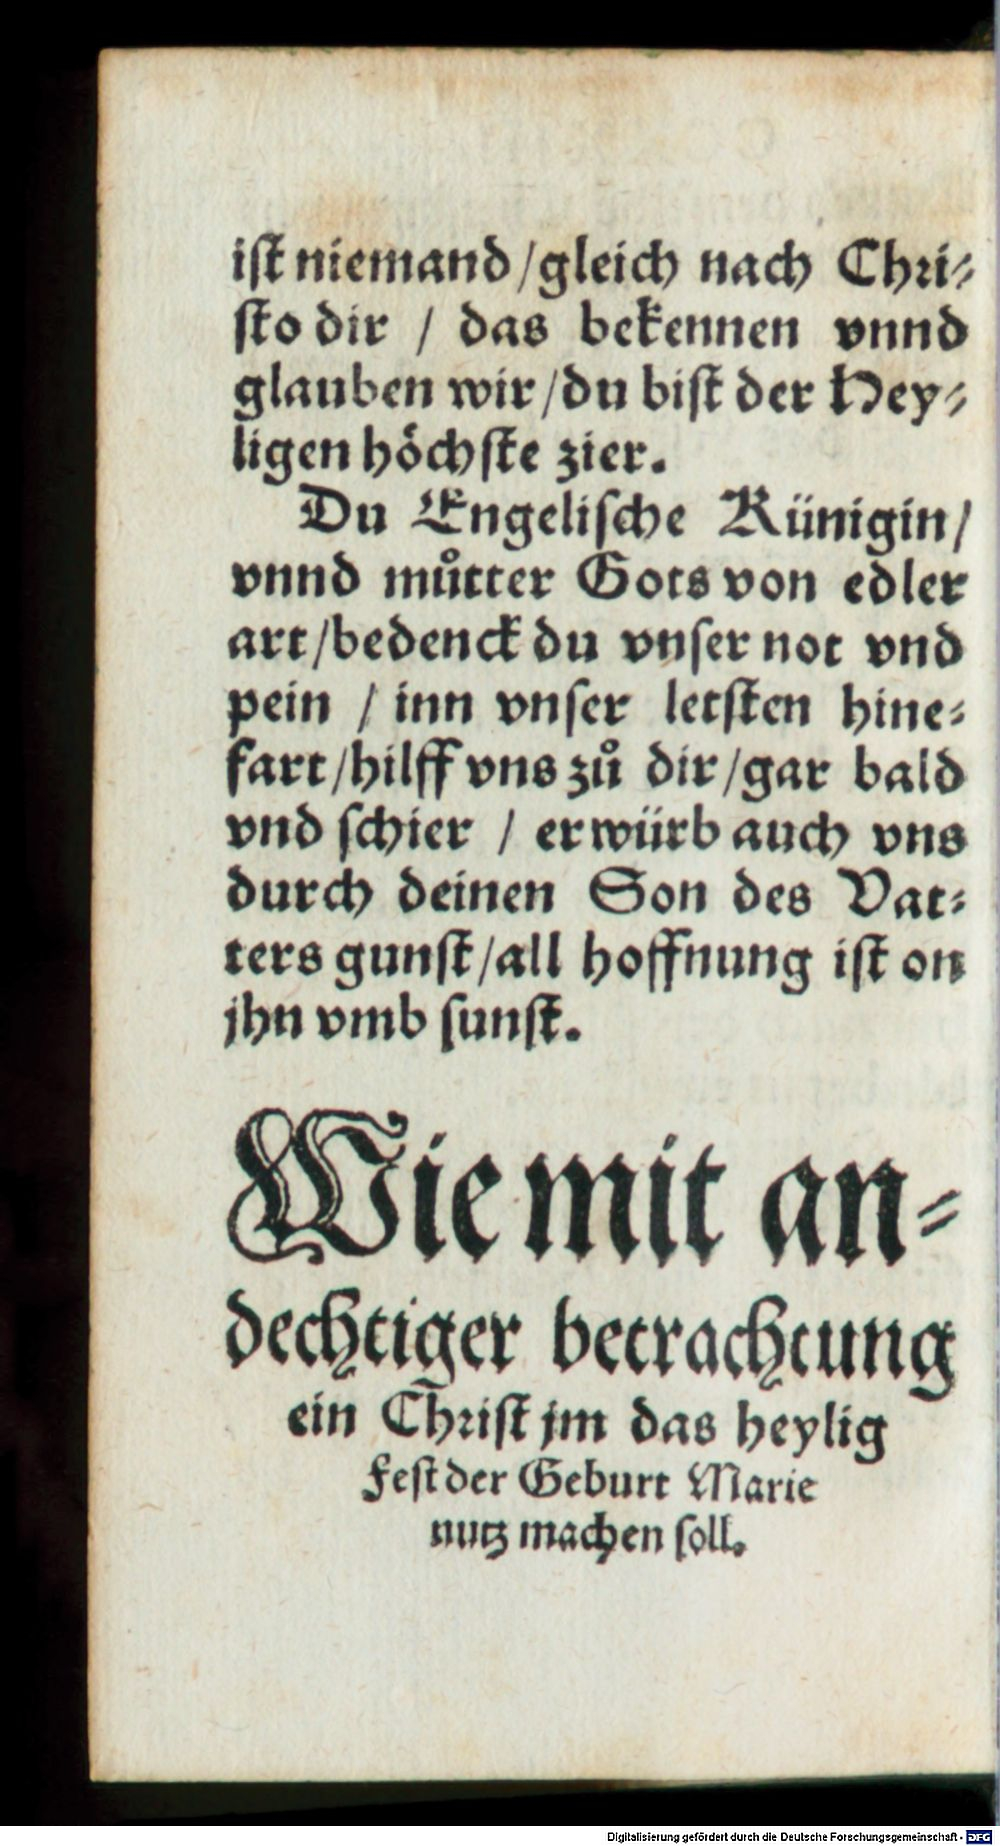 iſt niemand / gleich nach Chri⸗
ſto dir / das bekennen vnnd
glauben wir / du biſt der Hey⸗
ligen hoͤchſte zier.
Du Engeliſche Künigin /
vnnd muͦtter Gots von edler
art / bedenck du vnſer not vnd
pein / inn vnſer letſten hine⸗
fart / hilff vns zuͦ dir / gar bald
vnd ſchier / erwürb auch vns
durch deinen Son des Vat⸗
ters gunſt / all hoffnung iſt on
jhn vmb ſunſt.
Wie mit an⸗
dechtiger betrachtung
ein Chriſt jm das heylig
Feſt der Geburt Marie
nutz machen ſoll.
Digitalisierung gefördert durch die Deutsche Forschungsgemeinschaft - DFG